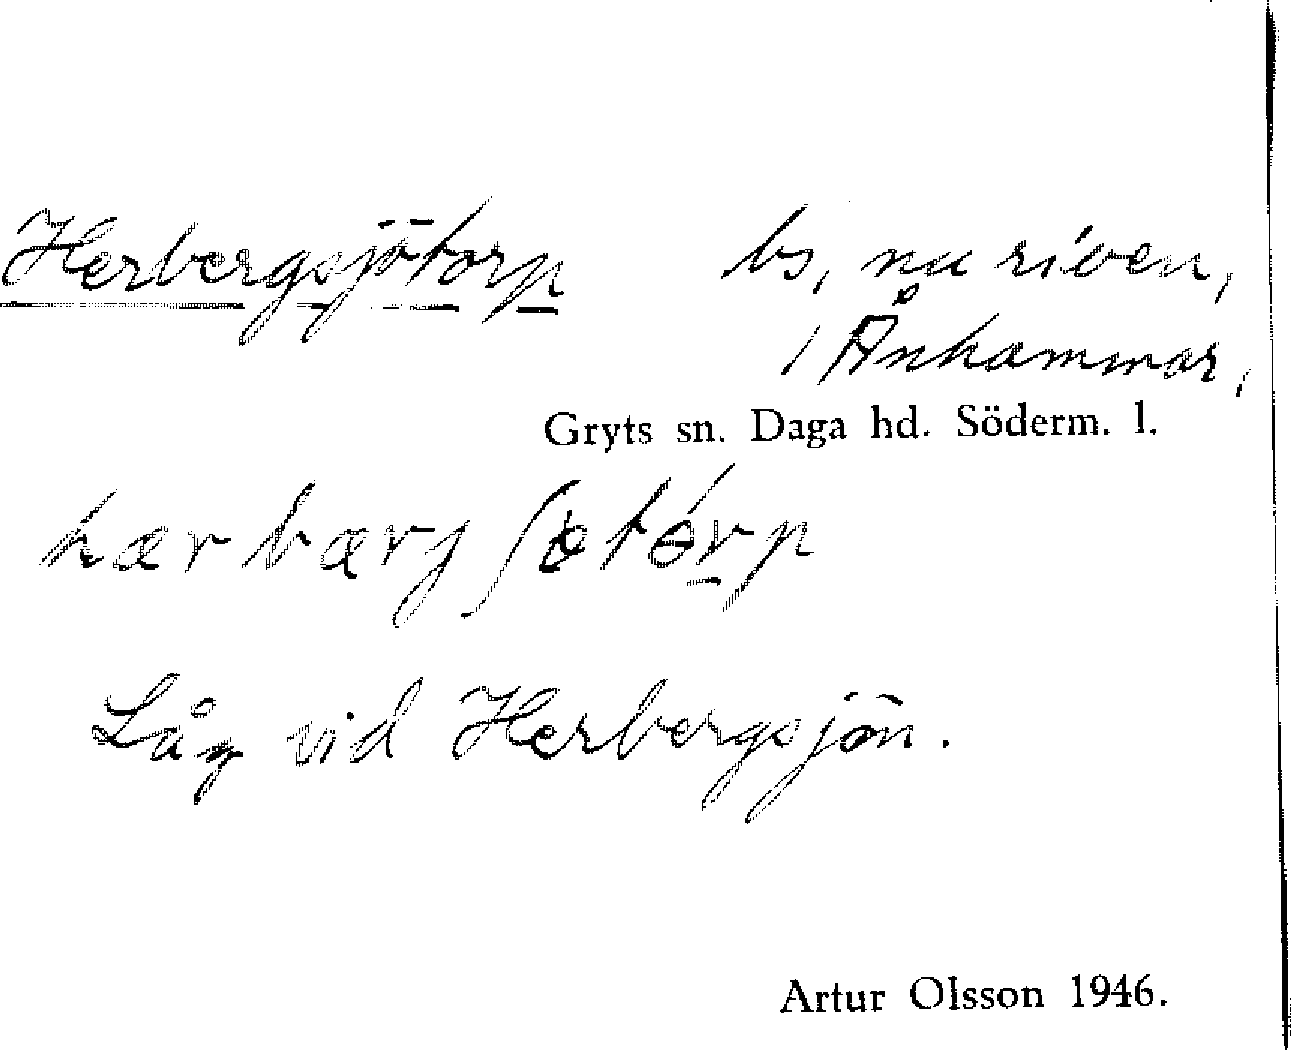 Herbergsjötorp bs, nu riven,
i Ånhammar,
Gryts sn. Daga hd. Söderm. l.
hærbærjʃøtɵ́rp
Låg vid Herbergsjön.
Artur Olsson 1946.